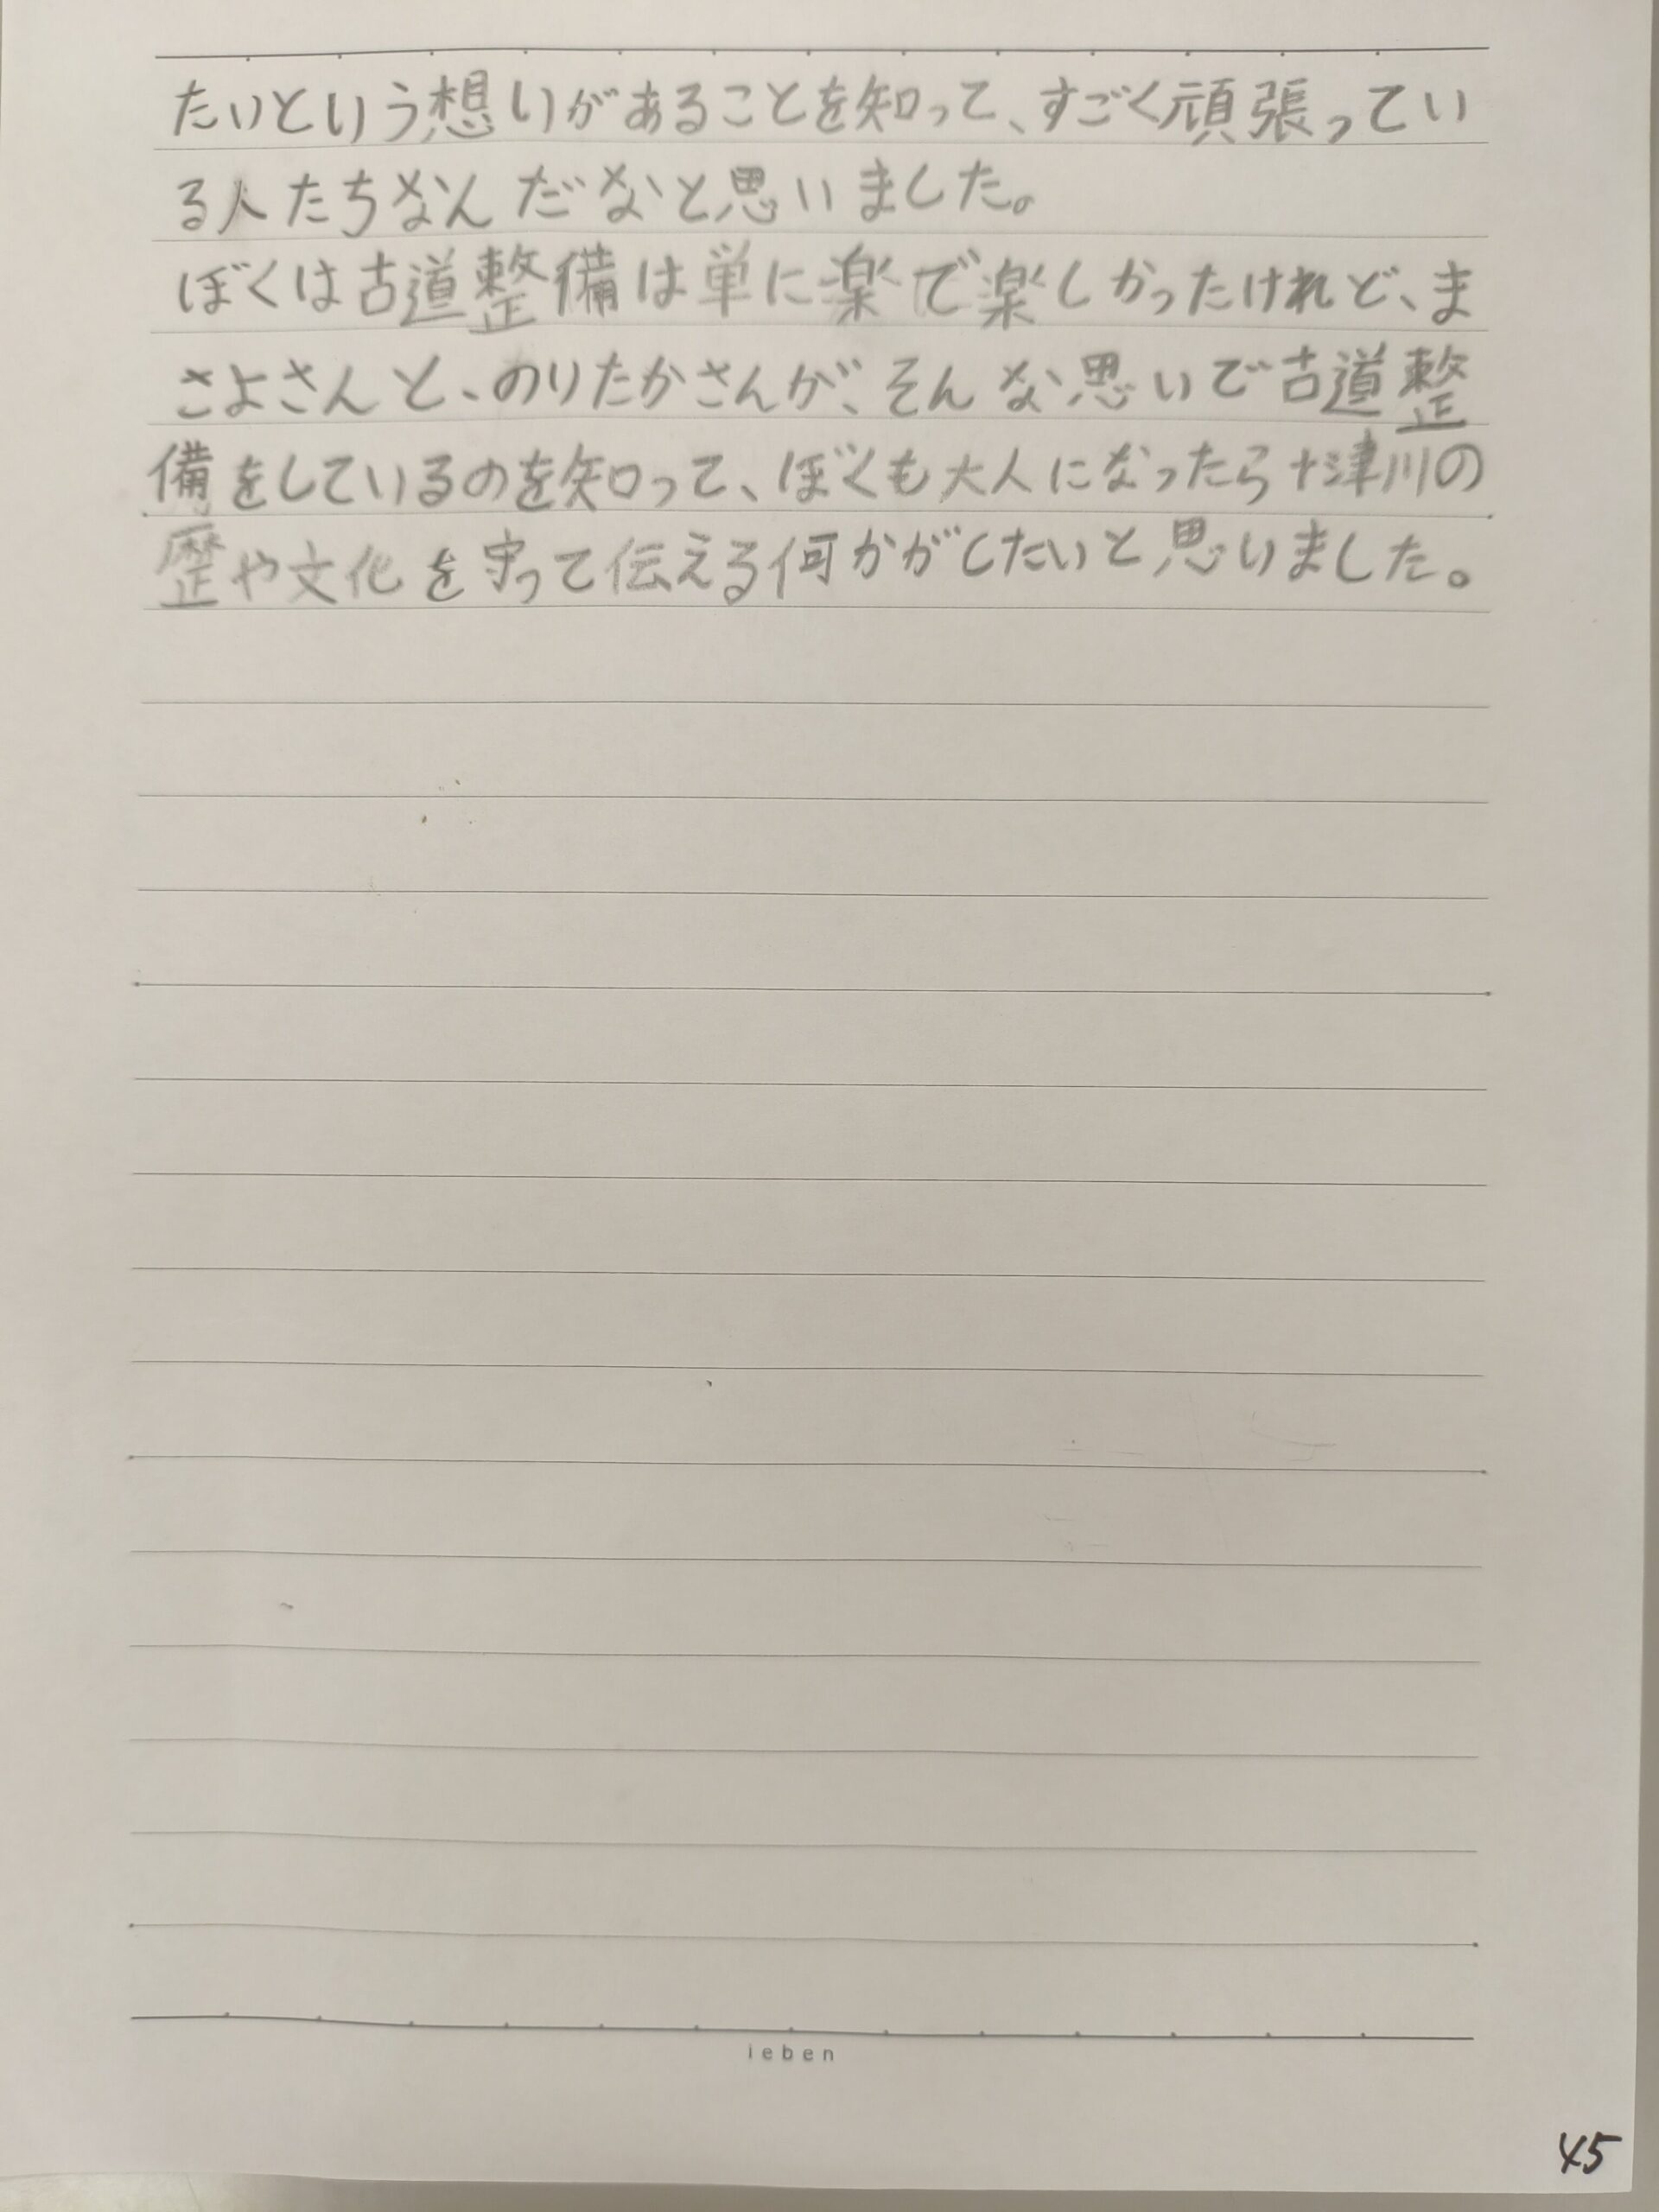 たいという想いがあることを知って、すごく頑張ってい
る人たちなんだなと思いました。
ぼくは古道整備は単に楽で楽しかったけれど、ま
さよさんと、のりたかさんが、そんな思いで古道整
備をしているのを知って、ぼくも大人になったら十津川の
歴や文化を守って伝える何かがしたいと思いました。
ieben
45